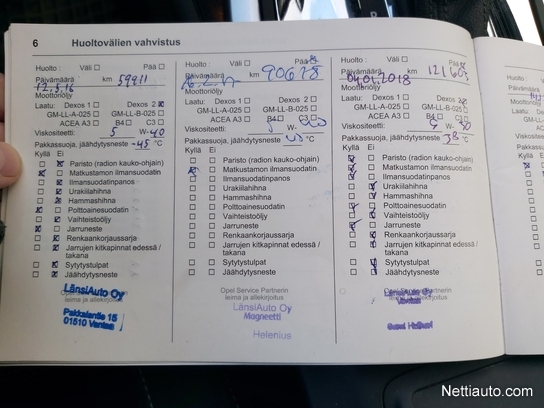 6 Huoltovälien vahvistus
Huolto : Väli Pää
Päivämäärä km 59911
12.5.16
Moottoriöljy
Laatu: Dexos 1 Dexos 2
GM-LL-A-025 GM-LL-B-025
ACEA A3 B4 C3
Viskositeetti: 5 W- 40
Pakkassuoja, jäähdytysneste -45 °C
Kyllä Ei
Paristo (radion kauko-ohjain)
Matkustamon ilmansuodatin
Ilmansuodatinpanos
Urakiilahihna
Hammashihna
Polttoainesuodatin
Vaihteistoöljy
Jarruneste
Renkaankorjaussarja
Jarrujen kitkapinnat edessä /
takana
Sytytystulpat
Jäähdytysneste
Opel Service Partnerin
leima ja allekirjoitus
LänsiAuto Oy
Pakkalantie 15
01510 Vantaa
Huolto : Väli Pää
Päivämäärä km 90678
Moottoriöljy
Laatu: Dexos 1 Dexos 2
GM-LL-A-025 GM-LL-B-025
ACEA A3 B4 C3
Viskositeetti: W-
Pakkassuoja, jäähdytysneste °C
Kyllä Ei
Paristo (radion kauko-ohjain)
Matkustamon ilmansuodatin
Ilmansuodatinpanos
Urakiilahihna
Hammashihna
Polttoainesuodatin
Vaihteistoöljy
Jarruneste
Renkaankorjaussarja
Jarrujen kitkapinnat edessä /
takana
Sytytystulpat
Jäähdytysneste
Opel Service Partnerin
leima ja allekirjoitus
LänsiAuto Oy
Magneetti
Helenius
Huolto : Väli Pää
Päivämäärä km 121603
04.01.2018
Moottoriöljy
Laatu: Dexos 1 Dexos 2
GM-LL-A-025 GM-LL-B-025
ACEA A3 B4 C3
Viskositeetti: W-
Pakkassuoja, jäähdytysneste °C
Kyllä Ei
Paristo (radion kauko-ohjain)
Matkustamon ilmansuodatin
Ilmansuodatinpanos
Urakiilahihna
Hammashihna
Polttoainesuodatin
Vaihteistoöljy
Jarruneste
Renkaankorjaussarja
Jarrujen kitkapinnat edessä /
takana
Sytytystulpat
Jäähdytysneste
Opel Service Partnerin
leima ja allekirjoitus
LänsiAuto Oy
Vantaa
Nettiauto.com